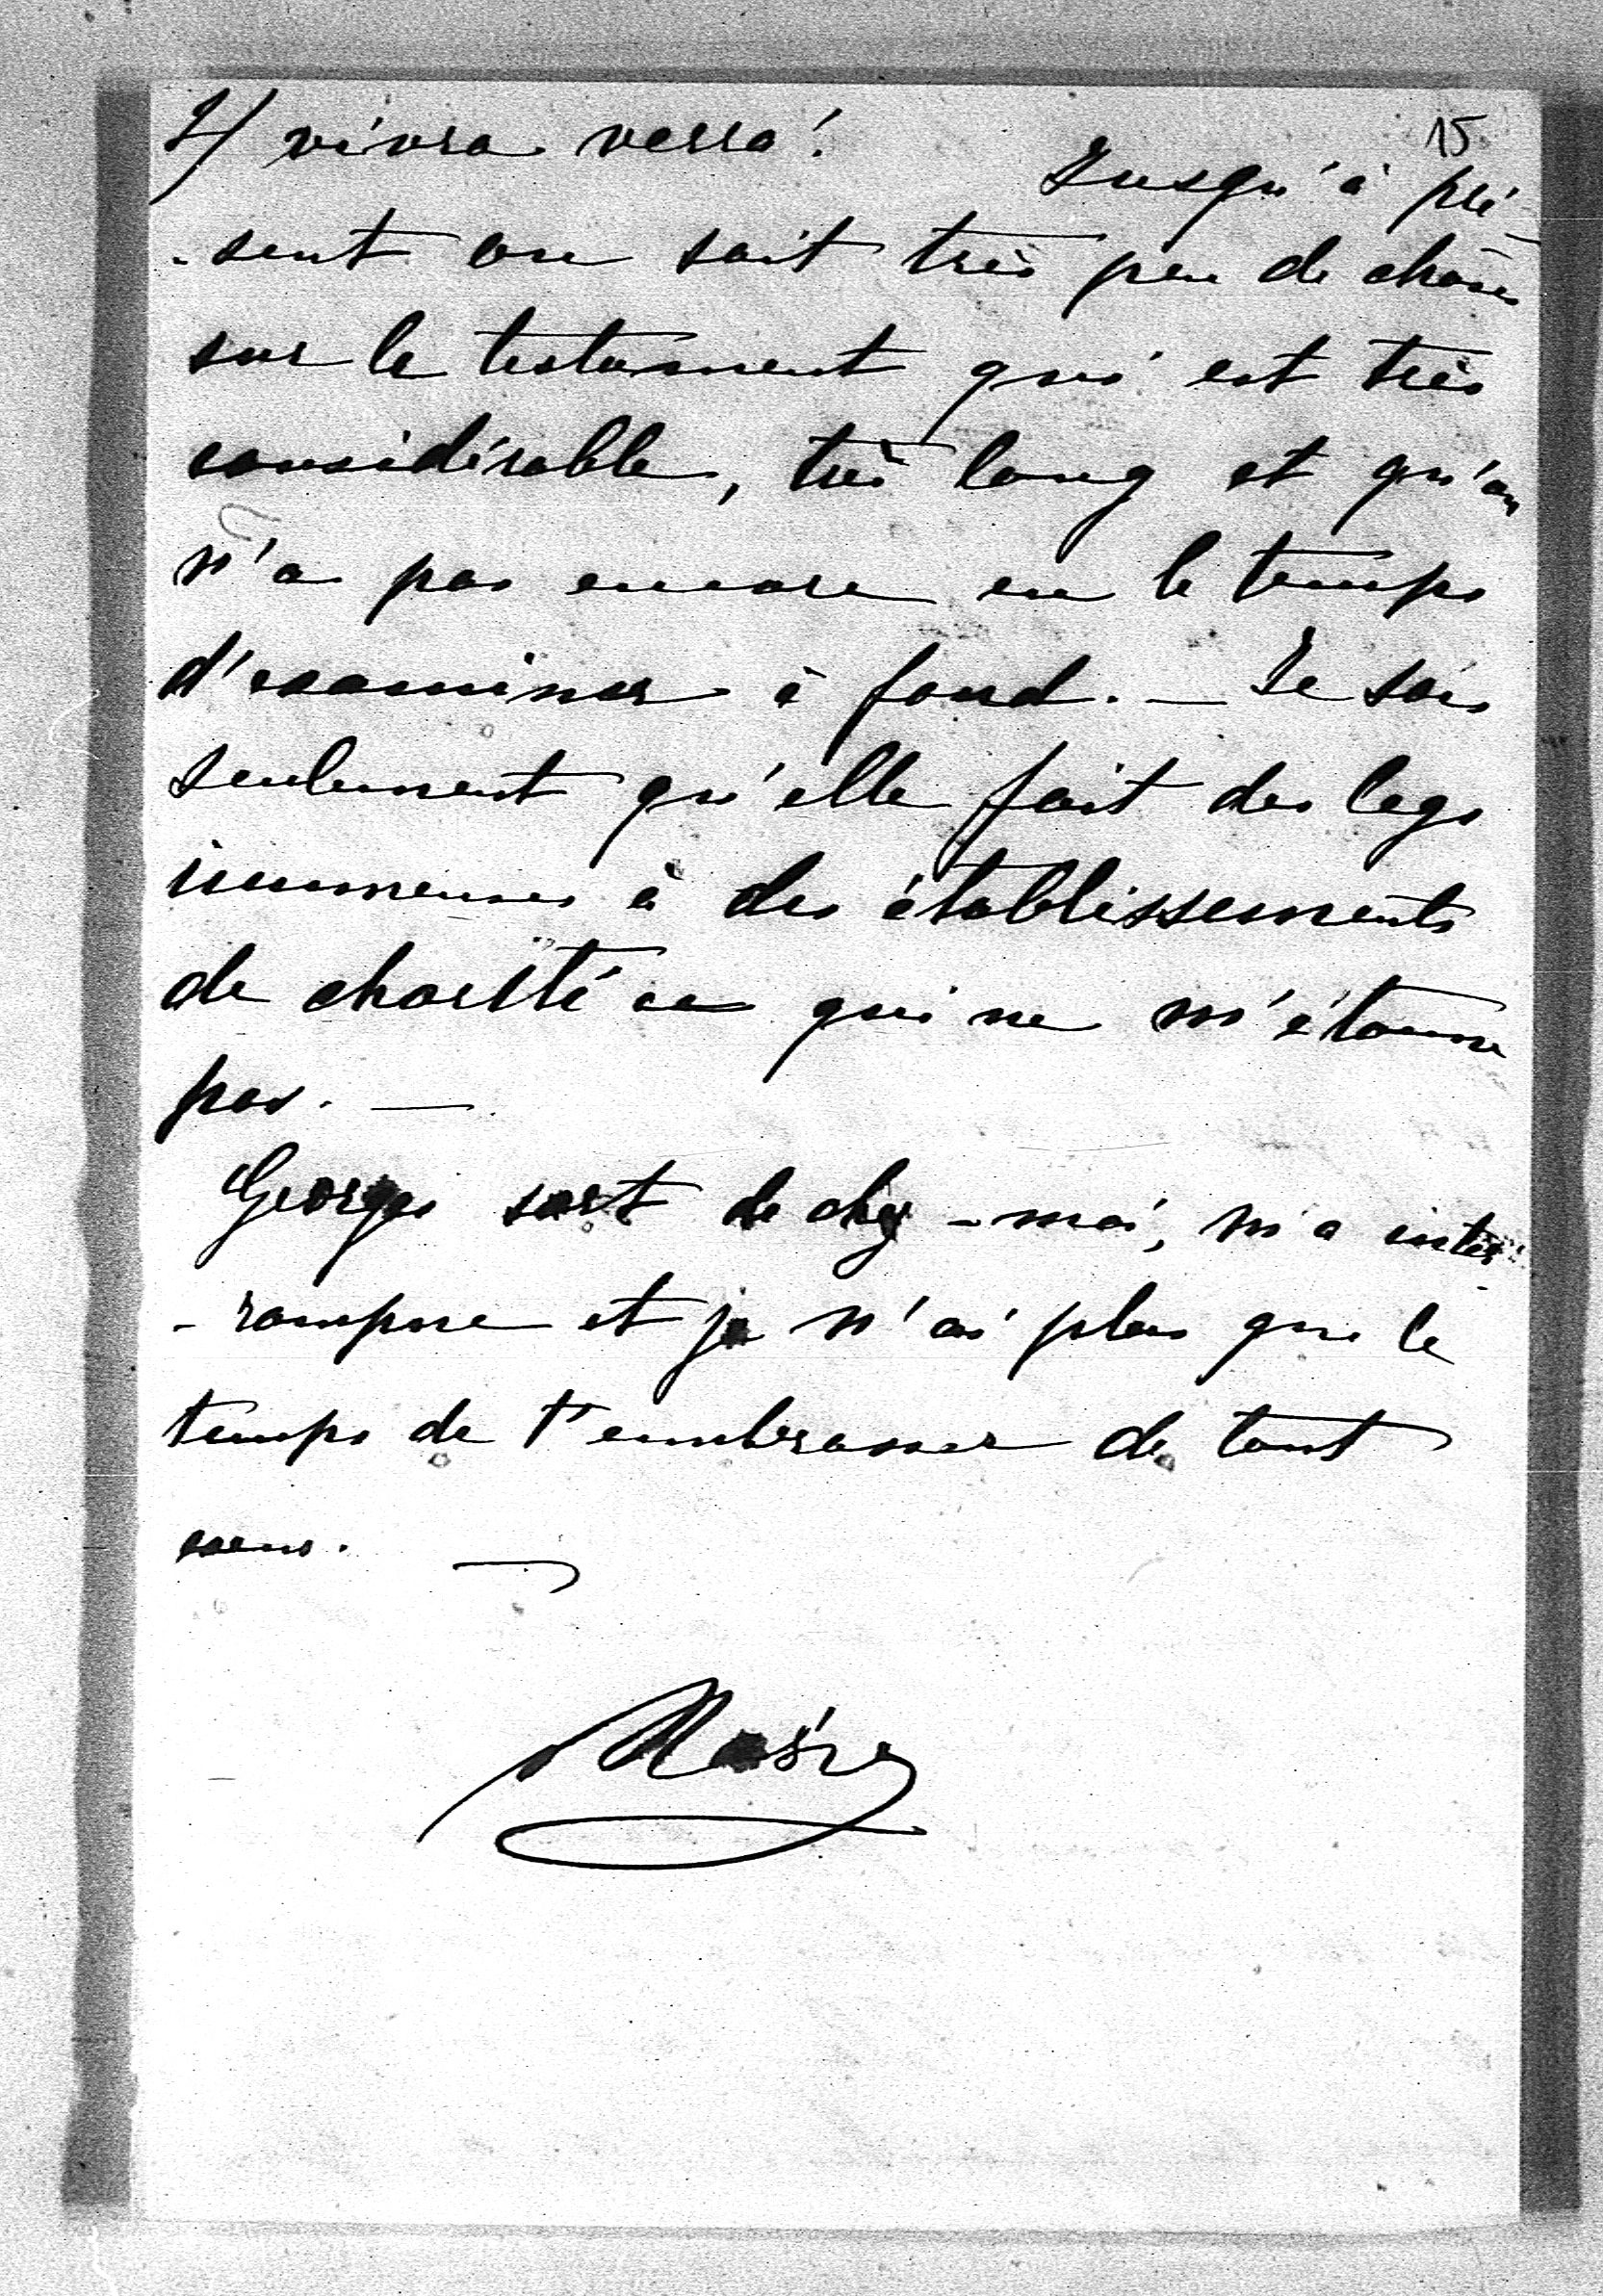 15
2/ vivra verra!
Jusqu'à pré-
-sent on sait très peu de choses
sur le testament qui est très
considérable, très long et qu'on
n'a pas encore eu le temps
d'examiner à fond. — Je sais
seulement qu'elle fait des legs
immenses à des établissements
de charité ce qui ne m'étonne
pas. —
Georges sort de chez-moi, m'a inter-
-rompue et je n'ai plus que le
temps de t'embrasser de tout
cœur. —